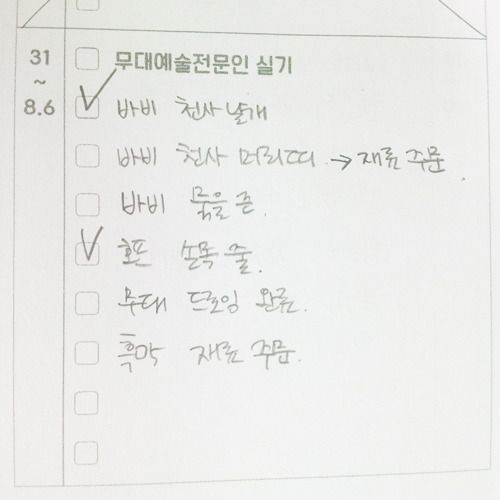 31
~
8.6
무대예술전문인 실기
바비 천사 날개
바비 천사 머리띠 → 재료 주문.
바비 묶을 존.
호프 손목 줄.
무대 드로잉 완료.
흑막 재료 주문.